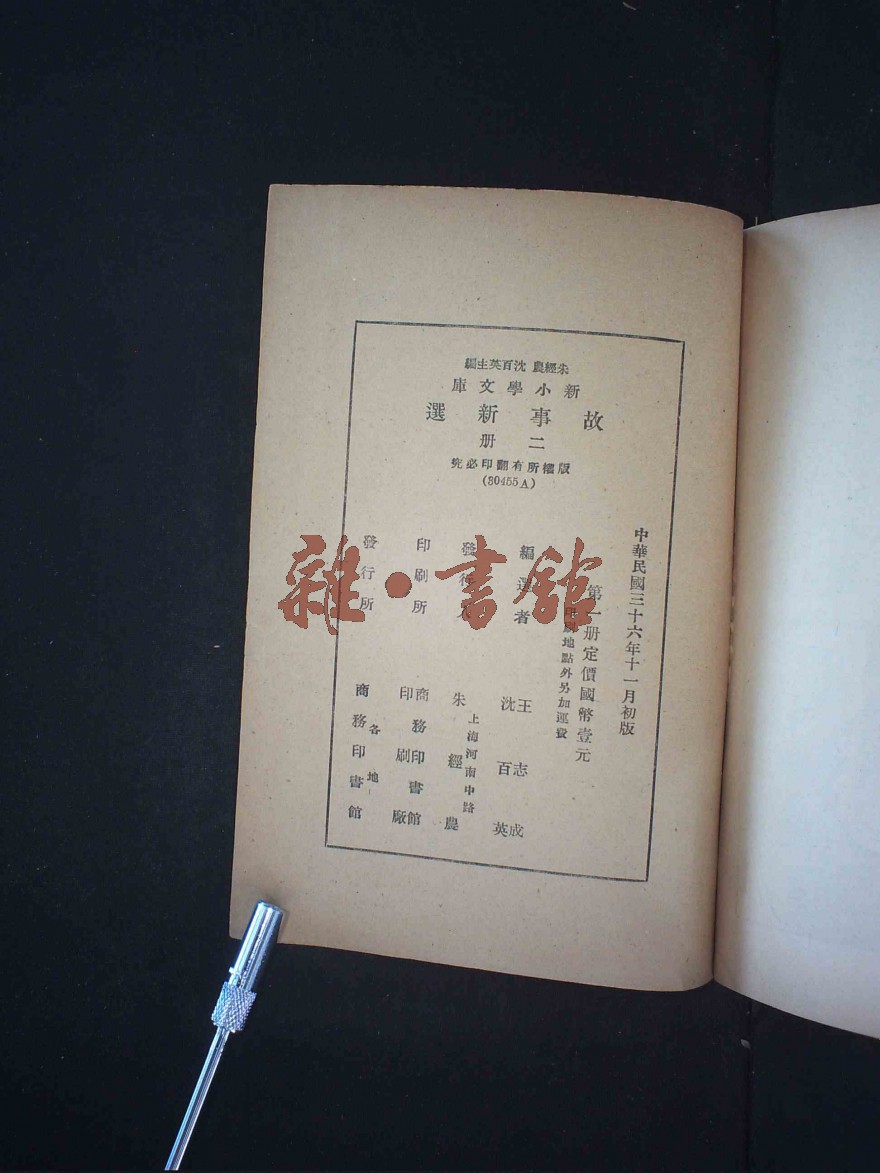 朱經農 沈百英主編
新小學文庫
故事新選
二册
版權所有翻印必究
(80455A)
中華民國三十六年十一月初版
第一册定價國幣壹元
地點外另加運費
編選者 王志成 沈百英
發行人 朱經農
上海河南中路
印刷所 商務印書館印刷廠
發行所 商務印書館
各地
雜·書館